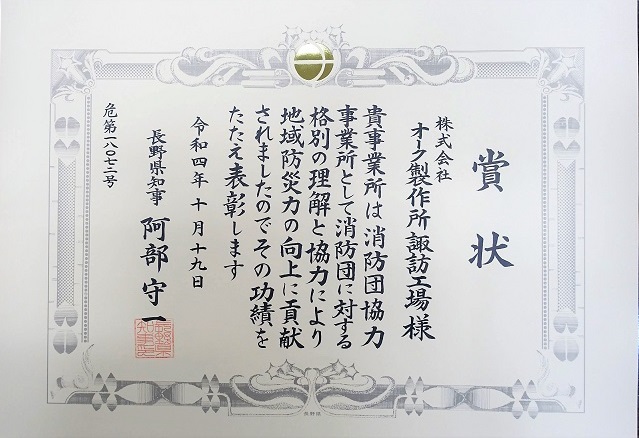 賞状
株式会社
オーク製作所 諏訪工場様
貴事業所は消防団協力
事業所として消防団に対する
格別の理解と協力により
地域防災力の向上に貢献
されましたのでその功績を
たたえ表彰します
令和四年十月十九日
長野県知事 阿部守一
長野県知事之印
危第一八〇七二号
長野県